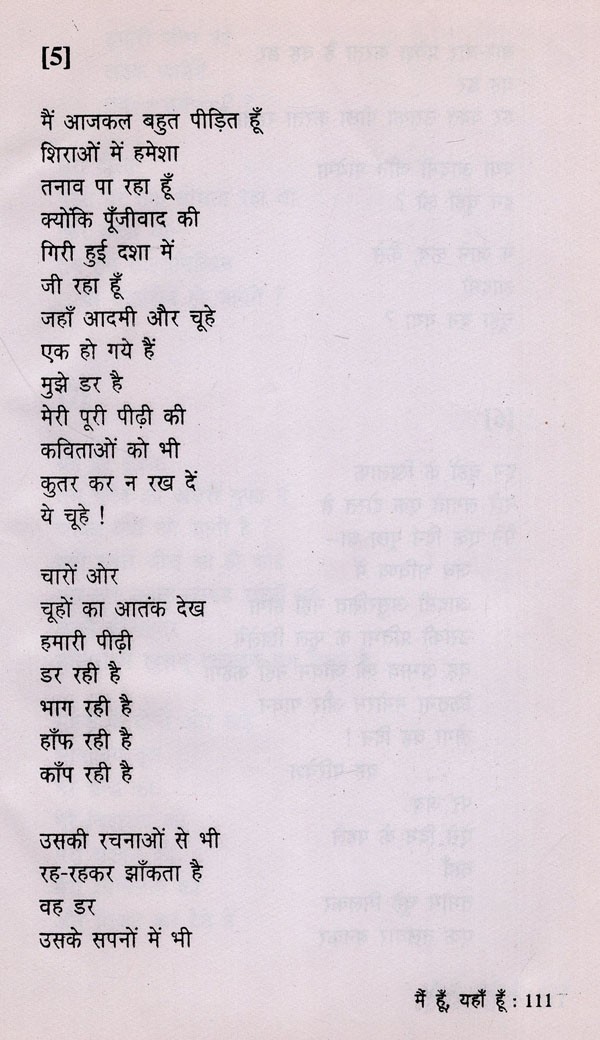 [5]
मैं आजकल बहुत पीड़ित हूँ
शिराओं में हमेशा
तनाव पा रहा हूँ
क्योंकि पूँजीवाद की
गिरी हुई दशा में
जी रहा हूँ
जहाँ आदमी और चूहे
एक हो गये हैं
मुझे डर है
मेरी पूरी पीढ़ी की
कविताओं को भी
कुतर कर न रख दें
ये चूहे !
चारों ओर
चूहों का आतंक देख
हमारी पीढ़ी
डर रही है
भाग रही है
हाँफ रही है
काँप रही है
उसकी रचनाओं से भी
रह-रहकर झाँकता है
वह डर
उसके सपनों में भी
मैं हूँ, यहाँ हूँ : 111